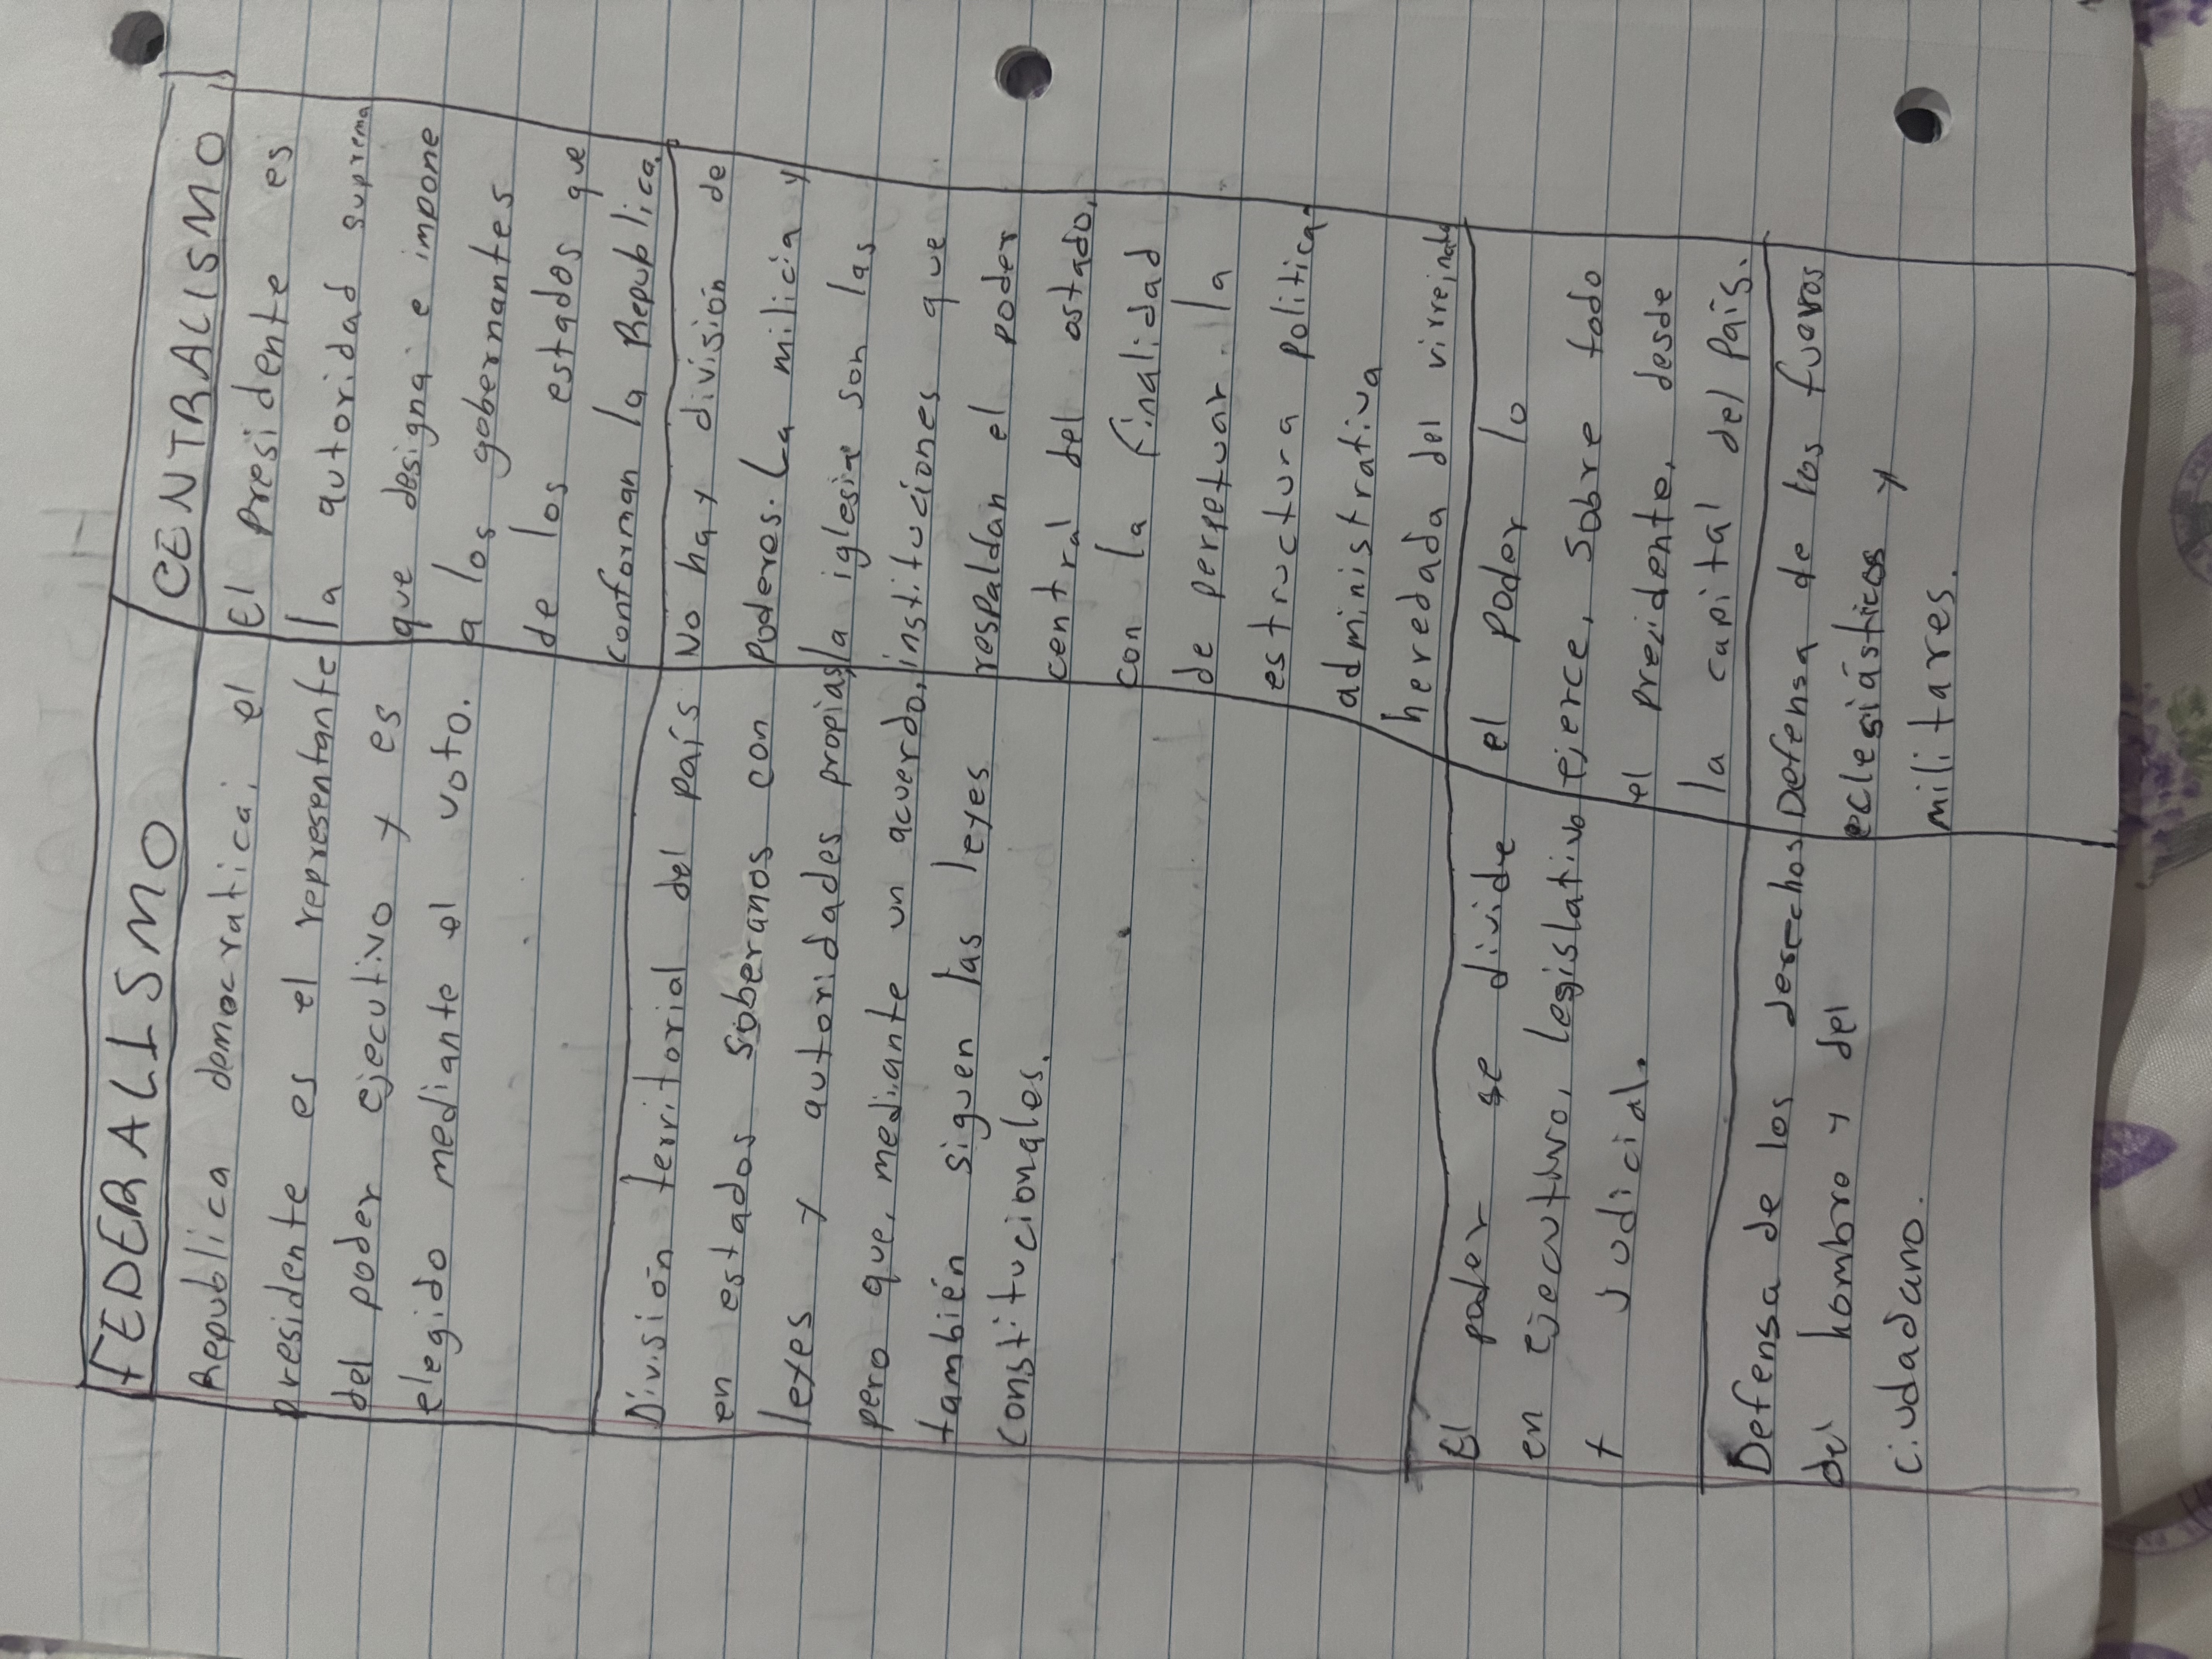 FEDERALISMO
Republica democratica, el
presidente es el representante
del poder ejecutivo y es
elegido mediante el voto.
CENTRALISMO
El Presidente es
la autoridad suprema
que designa e impone
a los gobernantes
de los estados que
conforman la Republica.
División territorial del país
en estados soberanos con
leyes y autoridades propias,
pero que, mediante un acuerdo,
también siguen las leyes
Constitucionales.
No hay división de
Poderes. La milicia y
la iglesia son las
instituciones que
respaldan el poder
central del estado,
con la finalidad
de perpetuar la
estructura politica,
administrativa
heredada del virreinato
El poder se divide
en ejecutivo, legislativo
y judicial.
el poder lo
ejerce, sobre todo
el presidente, desde
la capital del país.
Defensa de los derechos
del hombre y del
ciudadano.
Defensa de los fueros
eclesiásticos y
militares.